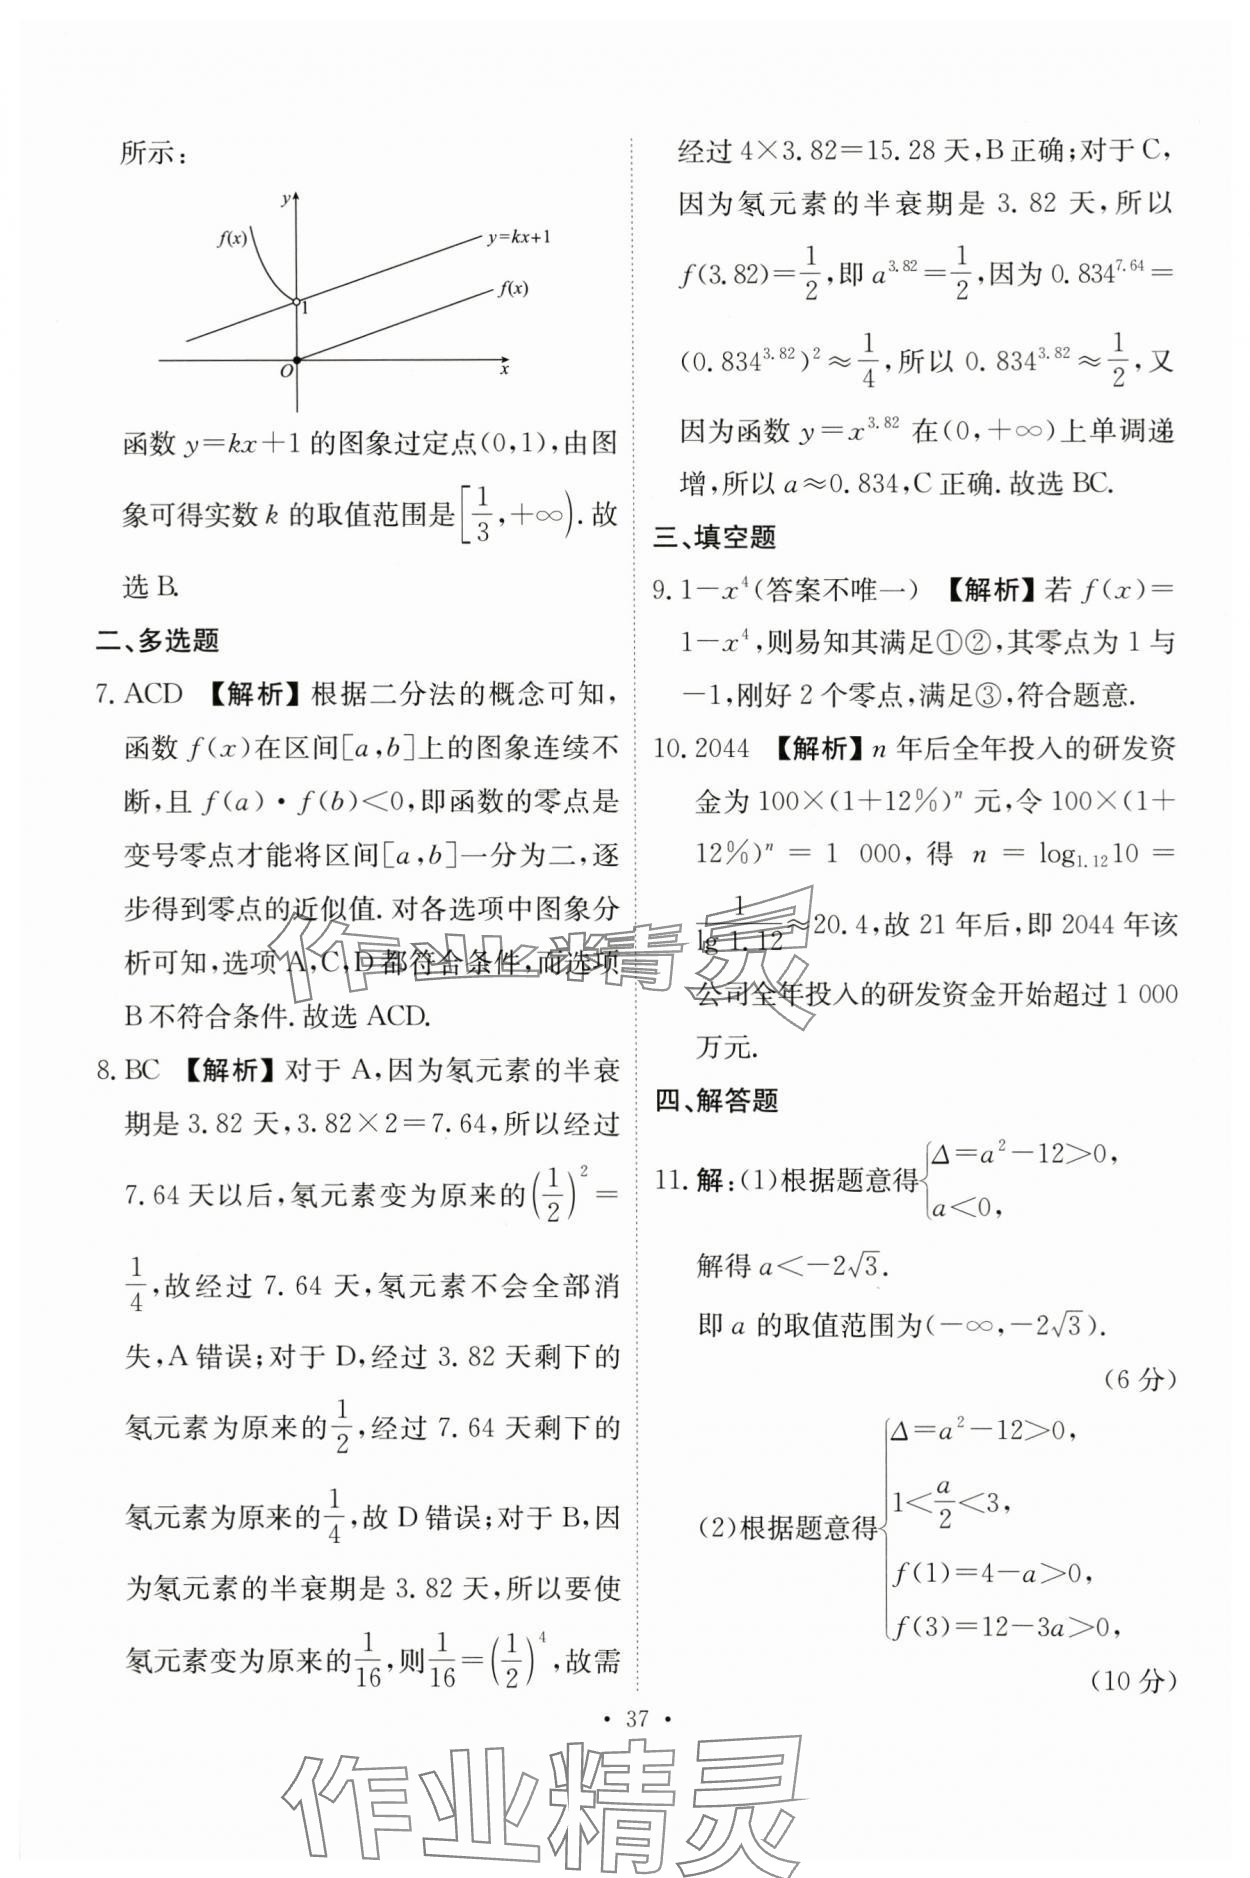 所示:
y
f(x)
y=kx+1
f(x)
1
O
x
函数 y=kx+1 的图象过定点(0,1),由图
象可得实数 k 的取值范围是[1/3,+∞).故
选 B.
二、多选题
7. ACD 【解析】根据二分法的概念可知,
函数 f(x)在区间[a,b]上的图象连续不
断,且 f(a)·f(b)<0,即函数的零点是
变号零点才能将区间[a,b]一分为二,逐
步得到零点的近似值.对各选项中图象分
析可知,选项 A,C,D都符合条件,而选项
B不符合条件.故选 ACD.
8. BC 【解析】对于 A,因为氡元素的半衰
期是 3.82 天,3.82×2=7.64,所以经过
7.64 天以后,氡元素变为原来的(1/2)²=
1/4,故经过 7.64 天,氡元素不会全部消
失,A 错误;对于 D,经过 3.82 天剩下的
氡元素为原来的1/2,经过 7.64 天剩下的
氡元素为原来的1/4,故 D 错误;对于 B,因
为氡元素的半衰期是 3.82 天,所以要使
氡元素变为原来的1/16,则1/16=(1/2)⁴,故需
经过 4×3.82=15.28 天,B 正确;对于 C,
因为氡元素的半衰期是 3.82 天,所以
f(3.82)=1/2,即 a^3.82=1/2,因为 0.834^7.64=
(0.834^3.82)²≈1/4,所以 0.834^3.82≈1/2,又
因为函数 y=x^3.82 在(0,+∞)上单调递
增,所以 a≈0.834,C 正确.故选 BC.
三、填空题
9. 1-x⁴(答案不唯一) 【解析】若 f(x)=
1-x⁴,则易知其满足①②,其零点为 1 与
-1,刚好 2 个零点,满足③,符合题意.
10. 2044 【解析】n 年后全年投入的研发资
金为 100×(1+12%)ⁿ 元,令 100×(1+
12%)ⁿ = 1 000, 得 n = log₁.₁₂10 =
1/lg 1.12≈20.4,故 21 年后,即 2044 年该
公司全年投入的研发资金开始超过 1 000
万元.
四、解答题
11. 解:(1)根据题意得{Δ=a²-12>0,
a<0,
解得 a<-2√3.
即 a 的取值范围为(-∞,-2√3).
(6 分)
(2)根据题意得{Δ=a²-12>0,
1<a/2<3,
f(1)=4-a>0,
f(3)=12-3a>0,
(10 分)
· 37 ·
作业精灵
作业精灵